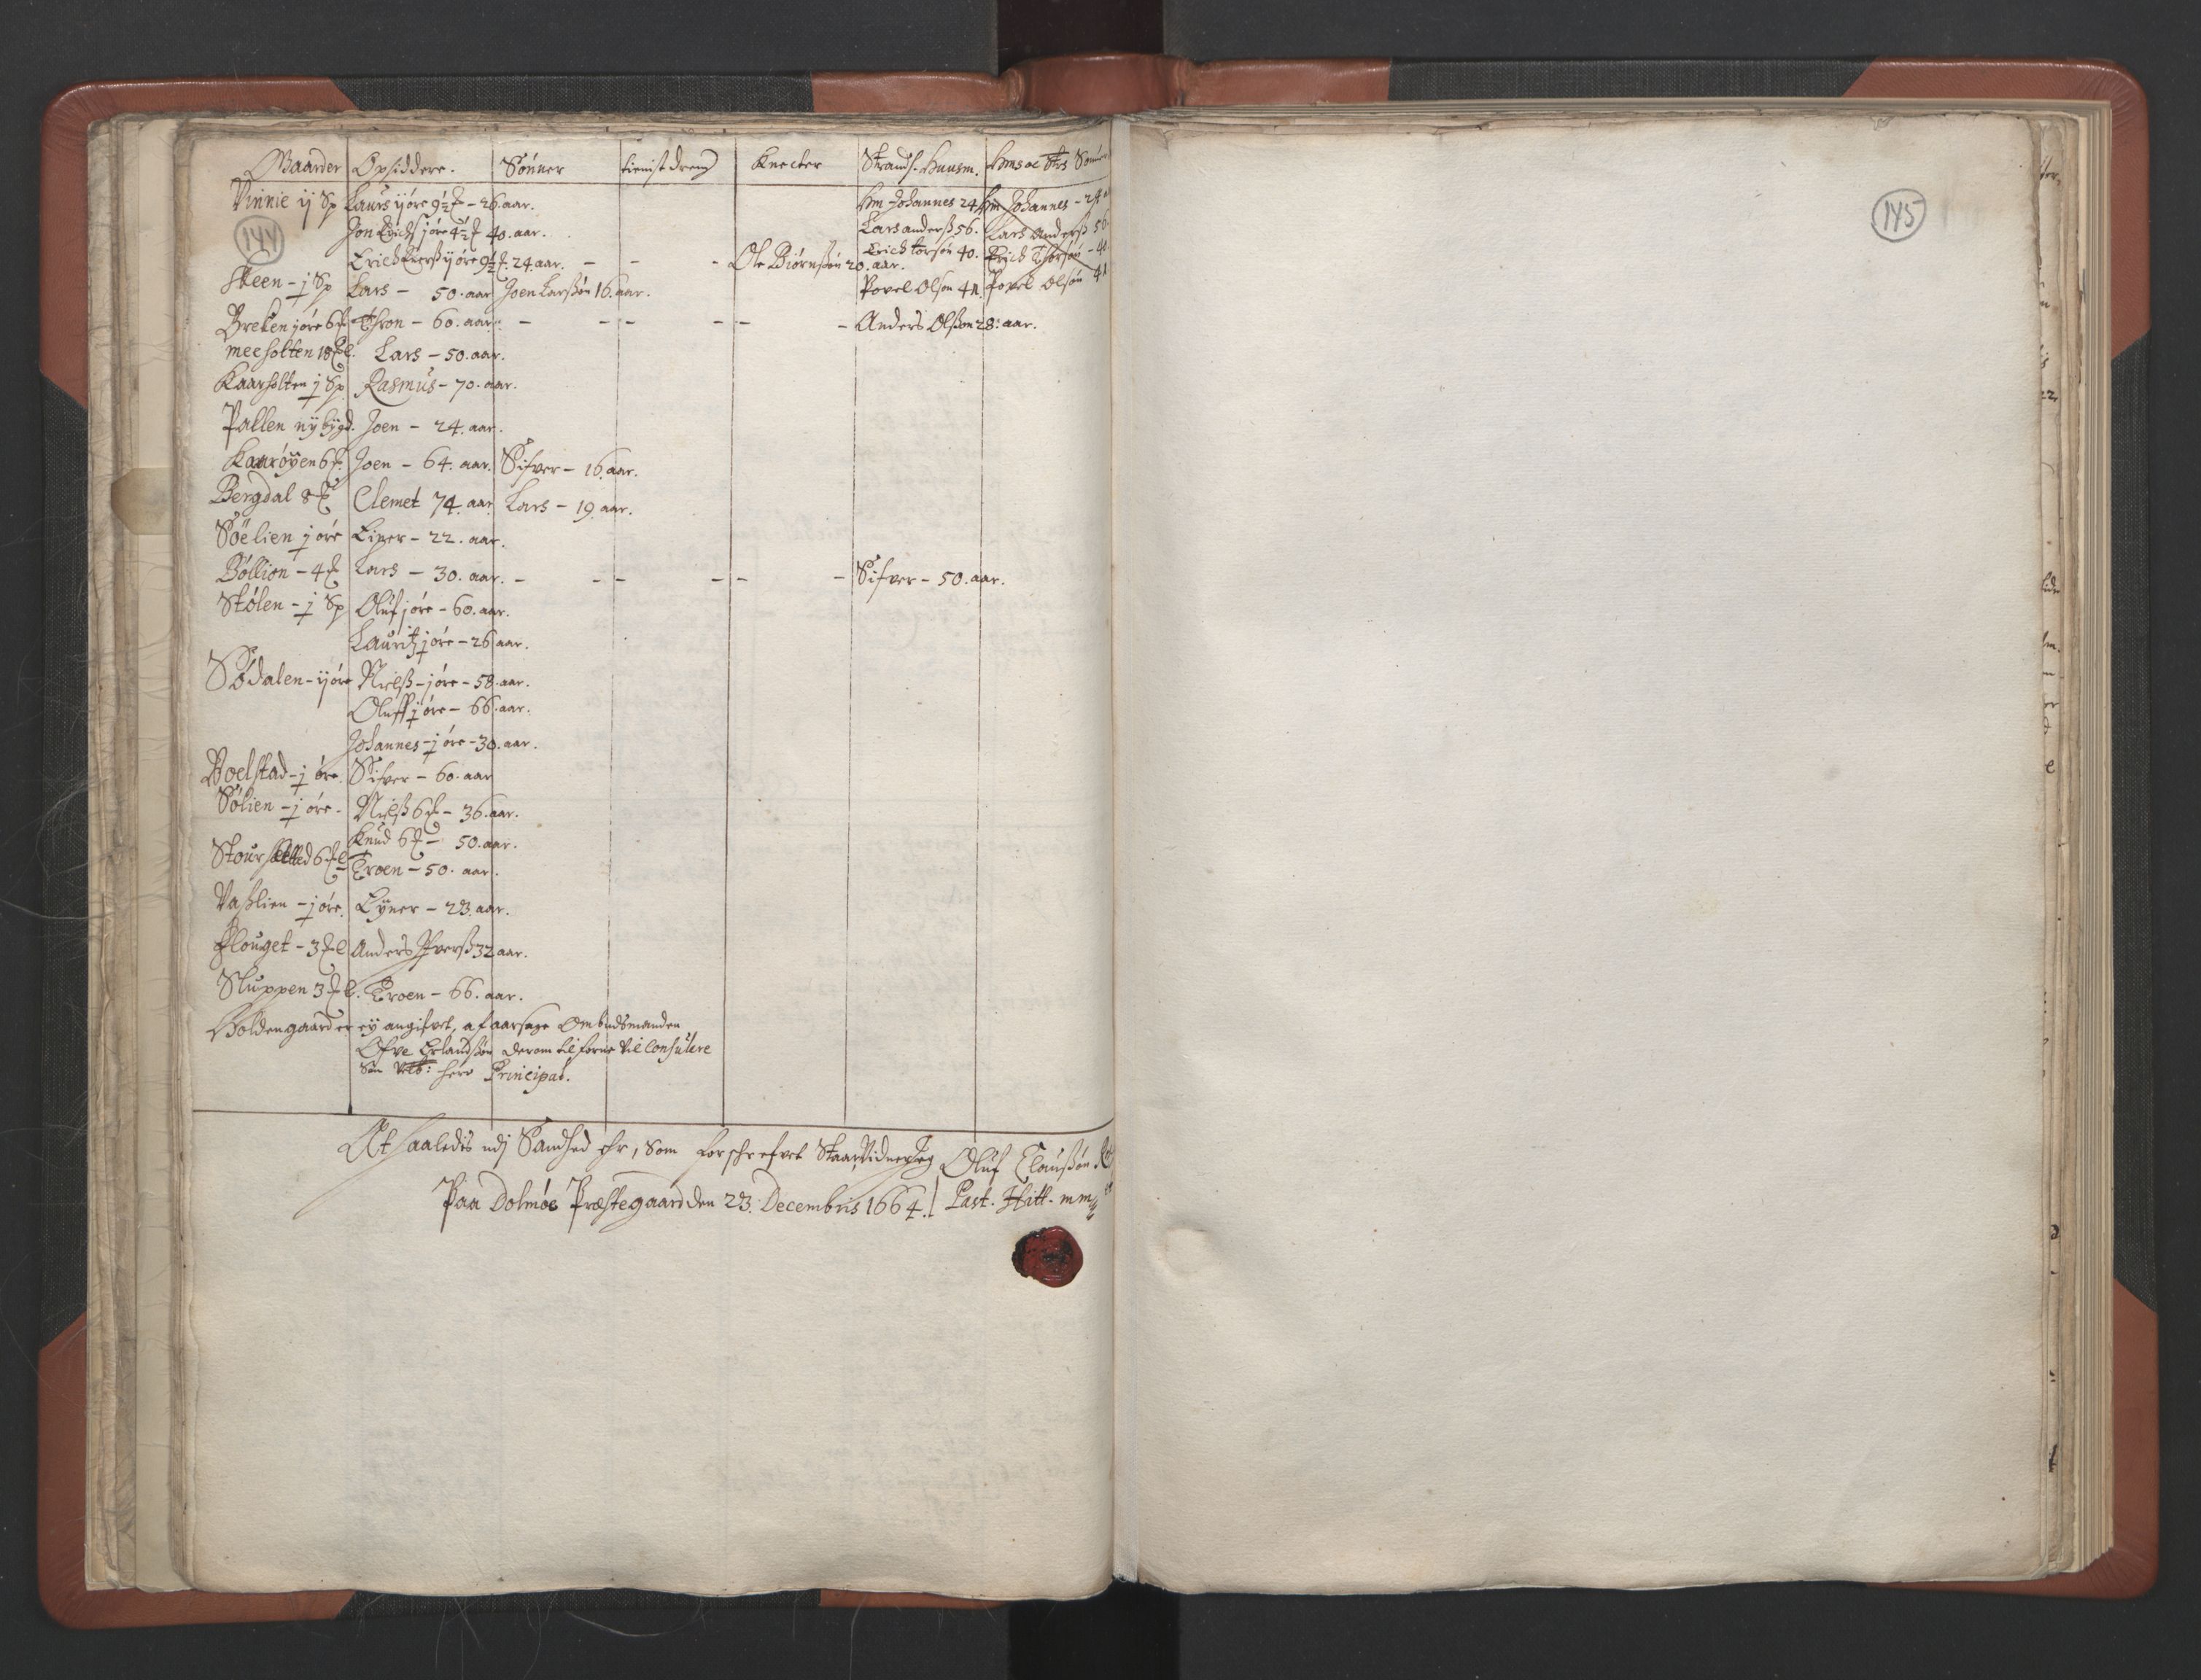 Gaarder Opsiddere. Sønner tienist dreng Knecter Strands. Huusm. Hms oc Sønner
Vinnie ij Sp Laurs ij øre 9½ - 26. aar. Hm Johannes 24 Hm Johannes - 24
144 Jon j øre 4½ 40. aar. Lars anderss. 56. Lars Anderss 56
Erich ij øre 9½ 24. aar. - - - Ole Biørnssøn 20. aar. Erich torsøn 40. Erich Thorsøn - 40
Skeen - j Sp Lars - 50. aar Joen Larssøn 16. aar. Povel Olsøn 41. Povel Olsøn 41
Breken j øre 6 Thron - 60. aar. - - - - - - Anders Olsson 28. aar.
meesolten 18 Lars - 50. aar.
Kaarsolten j Sp Rasmus - 70. aar.
Pallen nÿbÿgd. Joen - 24. aar.
Kaarøÿen 6 Joen - 64. aar. Sifver - 16. aar.
Bergdal 8 Clemet 74. aar Lars - 19 aar.
Søelien j øre Einer - 22. aar.
Bøllien - 4 Lars - 30. aar. - - - - - - Sifver - 50. aar.
Stølen - j Sp Oluf j øre - 60. aar.
Lauritz j øre - 26 aar.
Sødalen - ij øre Nielss - j øre - 58. aar.
Oluff j øre - 66. aar.
Johannes - j øre - 30. aar.
Boelstad - j øre. Sifver - 60. aar
Sølien - j øre. Nielss 6 - 36. aar.
Knud 6 - 50. aar.
6 Troen - 50. aar.
Vasslien - j øre. Eÿner - 23. aar.
Flouget - 3 Anders Iverss. 32 aar.
Sluppen 3 Troen - 66. aar.
Holdengaard er eÿ angifvet, af aarsage Ombudsmanden
Ofve Erlandssøn derom tilforne vil Consulere
Sin herr Principal.
At saaledis udj Sandhed ehr, som forschrefvet Staar, Vidner Jeg Oluf Claussøn
Paa Dolmøe Præstegaard den 23. Decembris 1664. Past. Hitt. mm
145